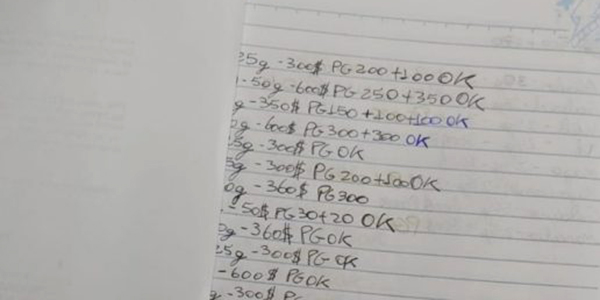 25g - 300$ PG 200 + 100 OK
- 50g - 600$ PG 250 + 350 OK
g - 350$ PG 150 + 100 + 100 OK
0g - 600$ PG 300 + 300 OK
5g - 300$ PG OK
5g - 300$ PG 200 + 100 OK
0g - 360$ PG 300
- 50$ PG 30 + 20 OK
0g - 360$ PG OK
25g - 300$ PG OK
- 600$ PG OK
g - 300$ PG